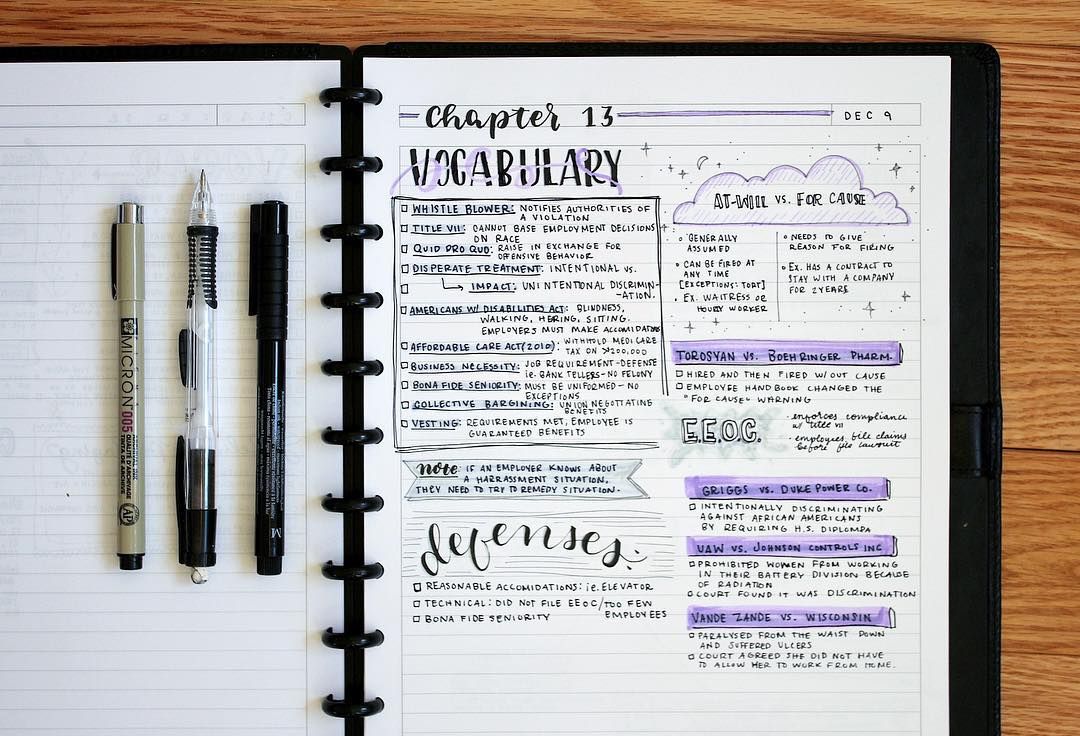 Chapter 13
DEC 9
VOCABULARY
☐ WHISTLE BLOWER: NOTIFIES AUTHORITIES OF
A VIOLATION
☐ TITLE VII: CANNOT BASE EMPLOYMENT DECISIONS
ON RACE
☐ QUID PRO QUO: RAISE IN EXCHANGE FOR
OFFENSIVE BEHAVIOR
☐ DISPERATE TREATMENT: INTENTIONAL VS.
☐ ↳ IMPACT: UNINTENTIONAL DISCRIMIN-
-ATION.
☐ AMERICANS W/ DISABILITIES ACT: BLINDNESS,
WALKING, HERING, SITTING.
EMPLOYERS MUST MAKE ACCOMIDATIONS
☐ AFFORDABLE CARE ACT (2010): WITHHOLD MEDICARE
TAX ON >200,000
☐ BUSINESS NECESSITY: JOB REQUIREMENT-DEFENSE
ie. BANK TELLERS-NO FELONY
☐ BONA FIDE SENIORITY: MUST BE UNIFORMED-NO
EXCEPTIONS
☐ COLLECTIVE BARGINING: UNION NEGOTIATING
BENEFITS
☐ VESTING: REQUIREMENTS MET, EMPLOYEE IS
GUARANTEED BENEFITS
note: IF AN EMPLOYER KNOWS ABOUT
A HARRASSMENT SITUATION,
THEY NEED TO TRY TO REMEDY SITUATION.
defenses:
☐ REASONABLE ACCOMIDATIONS: i.e. ELEVATOR
☐ TECHNICAL: DID NOT FILE EEOC/TOO FEW
EMPLOYEES
☐ BONA FIDE SENIORITY
AT-WILL VS. FOR CAUSE
• GENERALLY
ASSUMED
• CAN BE FIRED AT
ANY TIME
[EXCEPTIONS: TORT]
• EX. WAITRESS OR
HOURLY WORKER
• NEEDS TO GIVE
REASON FOR FIRING
• EX. HAS A CONTRACT TO
STAY WITH A COMPANY
FOR 2 YEARS
TOROSYAN VS. BOEHRINGER PHARM.
☐ HIRED AND THEN FIRED W/OUT CAUSE
☐ EMPLOYEE HANDBOOK CHANGED THE
"FOR CAUSE" WARNING
E.E.O.C.
• enforces compliance
w/ title VII
• employees file claims
before file lawsuit
GRIGGS VS. DUKE POWER CO.
☐ INTENTIONALLY DISCRIMINATING
AGAINST AFRICAN AMERICANS
BY REQUIRING H.S. DIPLOMPA
UAW VS. JOHNSON CONTROLS INC
☐ PROHIBITED WOMEN FROM WORKING
IN THEIR BATTERY DIVISION BECAUSE
OF RADIATION
☐ COURT FOUND IT WAS DISCRIMINATION
VANDE ZANDE VS. WISCONSIN
☐ PARALYSED FROM THE WAIST DOWN
AND SUFFERED ULCERS
☐ COURT AGREED SHE DID NOT HAVE
TO ALLOW HER TO WORK FROM HOME.
MICRON 005
ARCHIVAL INK
QUALITE D'ARCHIVAGE
TINTA DE ARCHIVE
AP
M